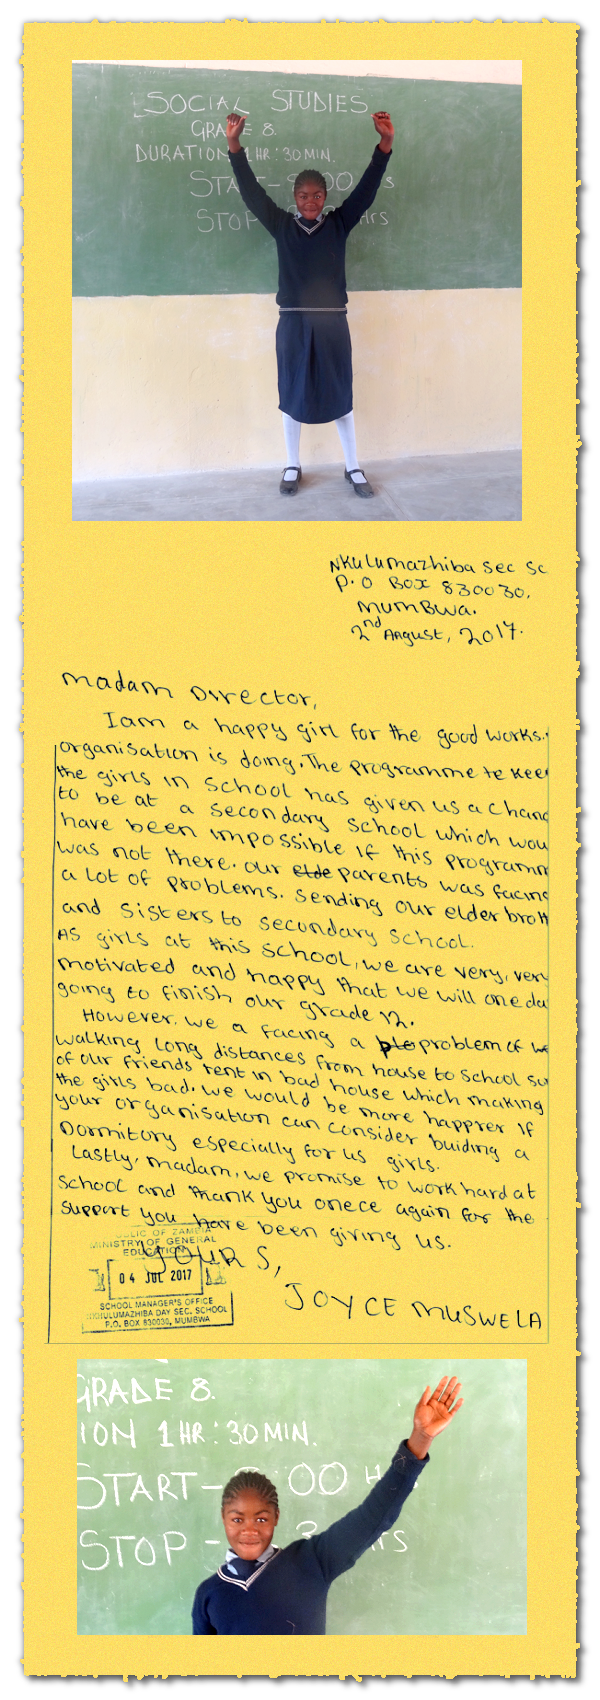 SOCIAL STUDIES
GRADE 8.
DURATION 1HR:30MIN.
START- 00 s
STOP Hrs
Nkulumazhiba Sec Sc
P.O Box 830030,
MumBwa.
2nd August, 2017.
Madam Director,
I am a happy girl for the good works.
organisation is doing. The programme to Keep
the girls in school has given us a chanc
to be at a secondary school which wou
have been impossible if this programm
was not there. our elde parents was facing
a lot of problems. sending our elder broth
and sisters to secondary school.
As girls at this school, we are very, very
motivated and happy that we will one da
going to finish our grade 12.
However, we a facing a problem of w
walking long distances from house to school so
of our friends rent in bad house which making
the girls bad. we would be more happier if
your organisation can consider buiding a
Dormitory especially for us girls.
Lastly, madam, we promise to work hard at
school and thank you onece again for the
support you have been giving us.
YOURS,
JOYCE MUSWELA
BLIC OF ZAMBIA
MINISTRY OF GENERAL
EDUCATION
04 JUL 2017
SCHOOL MANAGER'S OFFICE
NKULUMAZHIBA DAY SEC. SCHOOL
P.O. BOX 830030, MUMBWA
GRADE 8.
ION 1HR:30MIN.
START- :00 H s
STOP - 3 Hrs